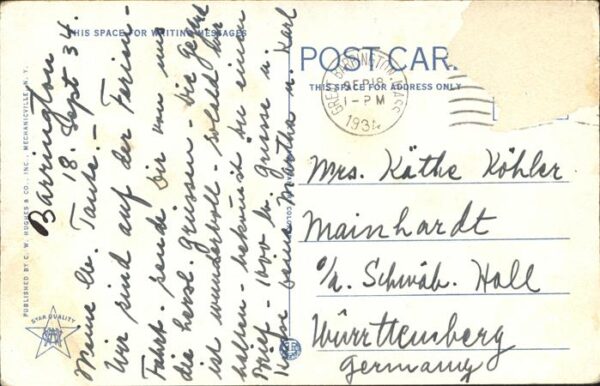 THIS SPACE FOR WRITING MESSAGES
Barrington
18. Sept 34.
Meine lb. Tante! -
Wir sind auf der Ferien-
fahrt - sende Dir von uns
die herzl. Grüssen - Die Gegend
ist wundervoll - sobald wir
halten - bekommst Du einen
Brief - 1000 lb. Grüsse u.
Küsse Deine Martha u. Karl
PUBLISHED BY C. W. HUGHES & CO., INC., MECHANICVILLE, N. Y.
STAR QUALITY
POST CAR
THIS SPACE FOR ADDRESS ONLY
GREAT BARRINGTON, MASS
SEP 18
1-PM
1934
Mrs. Käthe Köhler
Mainhardt
o/a. Schwäb. Hall
Württemberg
Germany